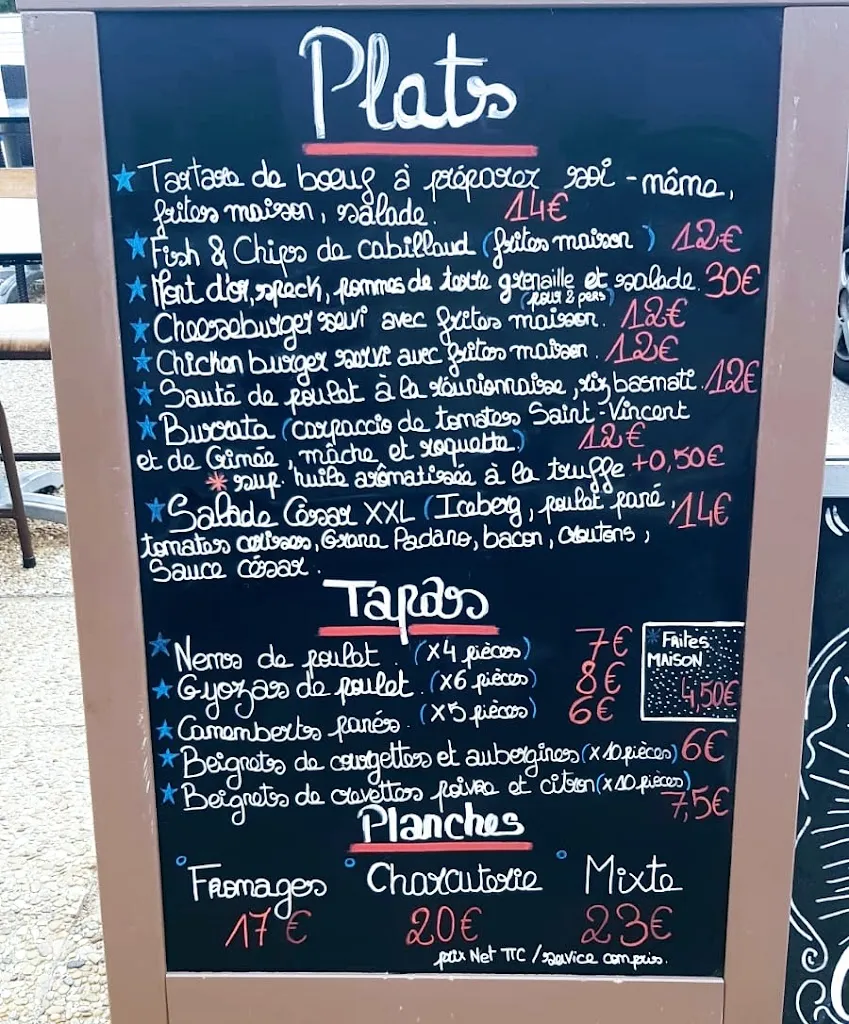 Plats
Tartare de boeuf à préparer soi-même,
frites maison, salade. 14€
Fish & Chips de cabillaud (frites maison) 12€
Mont d'or, speck, pommes de terre grenaille et salade. 30€
(pour 2 pers)
Cheeseburger servi avec frites maison. 12€
Chicken burger servi avec frites maison. 12€
Sauté de poulet à la réunionnaise, riz basmati. 12€
Burrata (carpaccio de tomates Saint-Vincent
et de Crimée, mâche et roquette) 12€
* sup. huile arômatisée à la truffe +0,50€
Salade César XXL (Iceberg, poulet pané, 14€
tomates cerises, Grana Padano, bacon, croutons,
Sauce césar.
Tapas
Nems de poulet. (x4 pièces) 7€
Gyozas de poulet. (x6 pièces) 8€
Camemberts panés. (x5 pièces) 6€
* Frites
MAISON
4,50€
Beignets de courgettes et aubergines (x10 pièces) 6€
Beignets de crevettes poivre et citron (x10 pièces)
7,5€
Planches
° Fromages ° Charcuterie ° Mixte
17€ 20€ 23€
prix Net TTC / service compris.